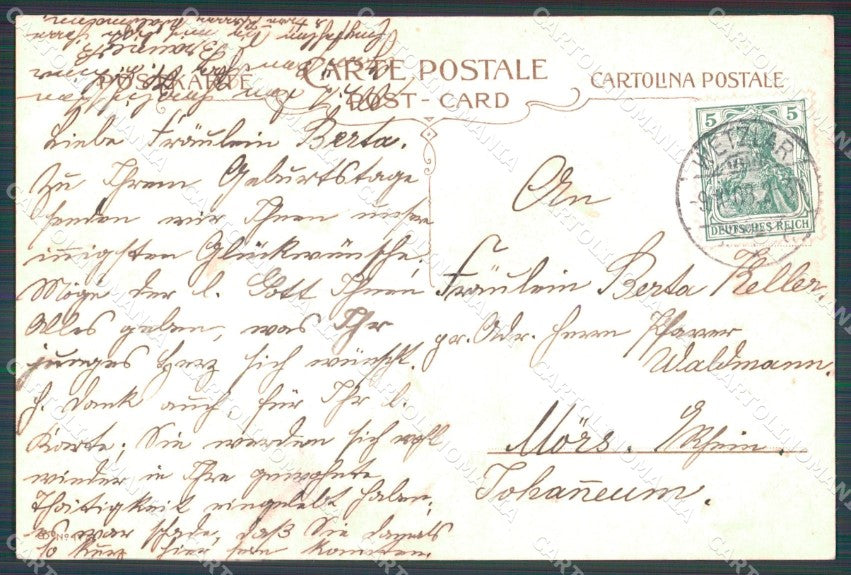 POSTKARTE
CARTE POSTALE
POST-CARD
CARTOLINA POSTALE
5 5
WETZLAR
DEUTSCHES REICH
Liebe Fräulein Berta.
Zu Ihrem Geburtstage
senden wir Ihnen unsre
innigsten Glückwünsche.
Möge der l. Gott Ihnen
Alles geben, was Ihr
junges Herz sich wünscht.
H. Dank auch für Ihr l.
Karte; Sie werden sich wohl
wieder in Ihre gewohnte
Thätigkeit eingelebt haben,
es war schade, daß Sie damals
so kurz hier sein konnten.
An
Fräulein Berta Keller.
pr. Adr. Herrn Pfarrer
Waldmann.
Mörs. Rhein.
Johan̄eum.
CARTOLINOMANIA